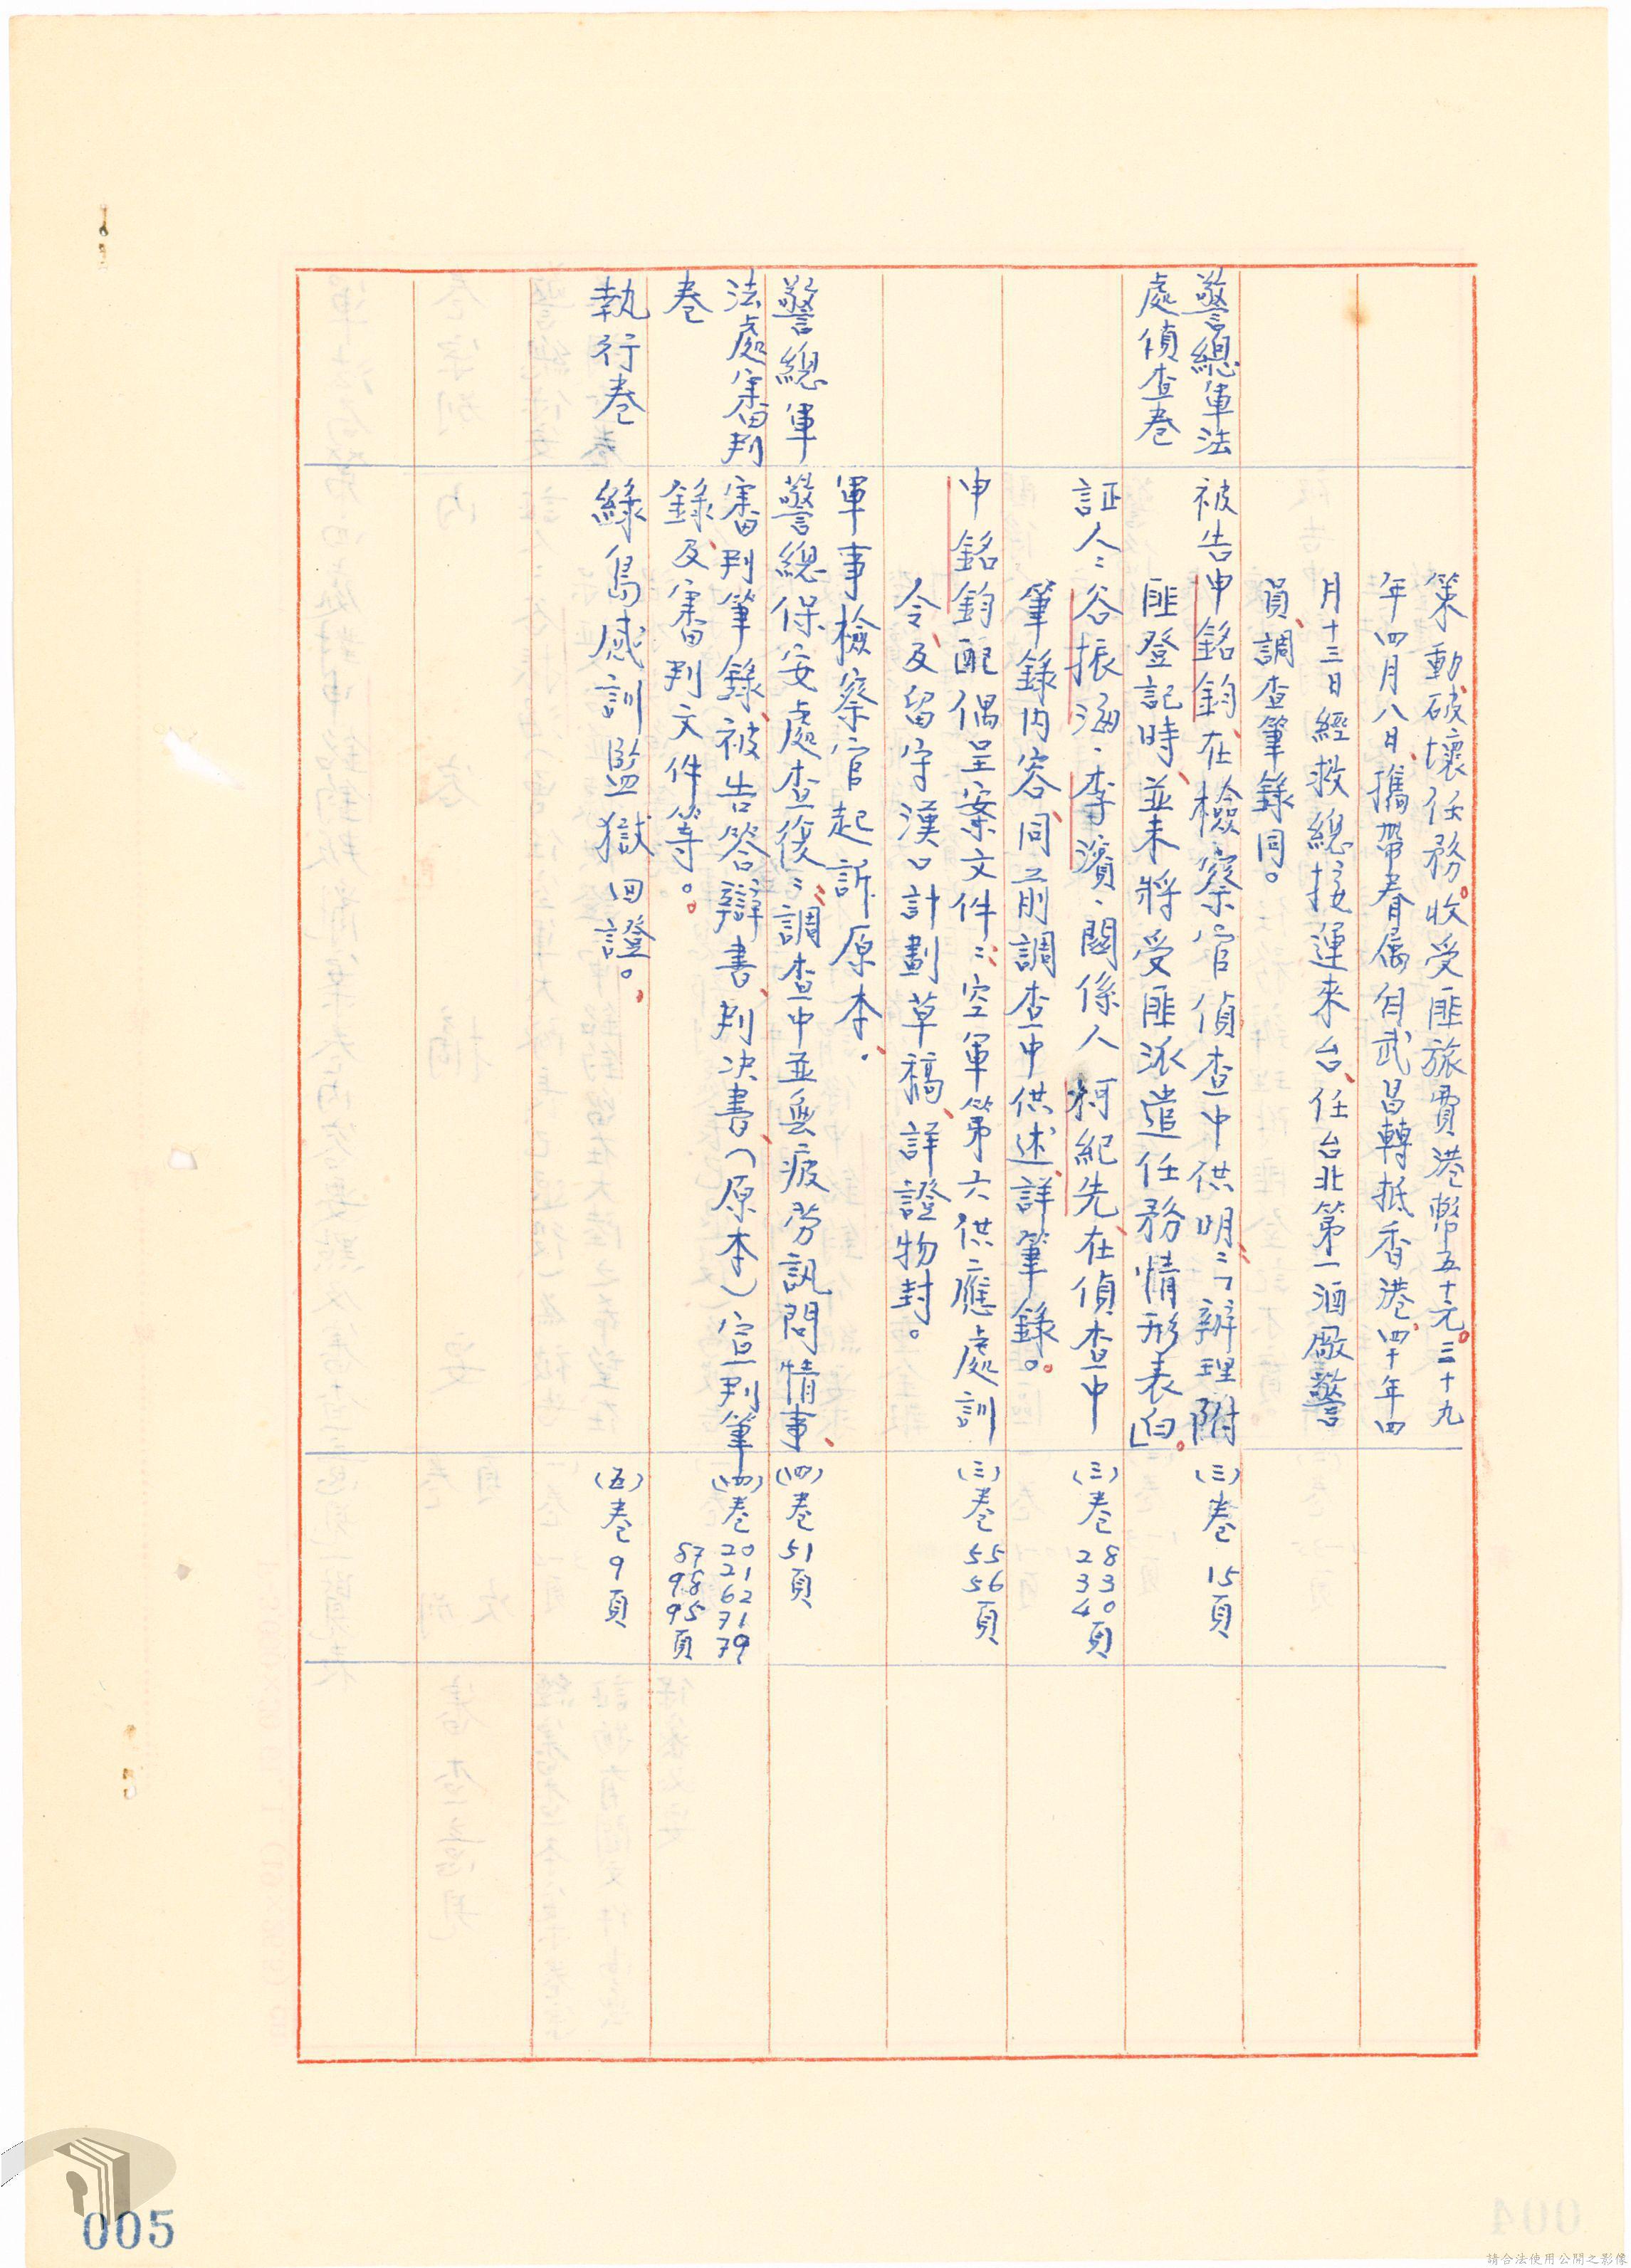 策動、破壞任務。收受匪旅費港幣五十元。三十九
年四月八日、攜帶眷屬自武昌轉抵香港、四十年四
月十三日經救總接運來台、任台北第一酒廠警
員、調查筆錄同。
警總軍法
處偵查卷
被告申銘鈞、在檢察官偵查中供明：「辦理附
匪登記時、並未將受匪派遣任務情形表白」。
(三)卷 15頁
証人：谷振海、李濱、關係人柯紀先、在偵查中
筆錄內容、同前調查中供述、詳筆錄。
(三)卷 28 33 40 頁
申銘鈞配偶呈案文件：空軍第六供應處訓
令、及留守漢口計劃草稿、詳證物封。
(三)卷 55 56 頁
軍事檢察官起訴原本.
警總軍
法處審判
卷
警總保安處查復：調查中並無疲勞訊問情事、
(四)卷 51頁
審判筆錄、被告答辯書、判決書(原本)宣判筆
錄、及審判文件等。
(四)卷 20 21 62 71 79
87 98 95 頁
執行卷
綠島感訓監獄回證。
(五)卷 9 頁
005
004
請合法使用公開之影像